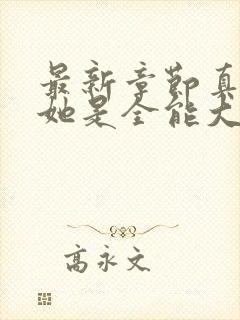 最新章節真
她是全能大
高永文